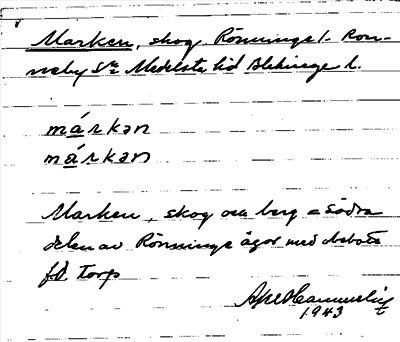 Marken, skog Rönninge 1. Ron-
neby Sn Medelsta hd Blekinge l.
márkən
márkən
Marken, skog och berg = södra
delen av Rönninge ägor med
fd Torp
1943